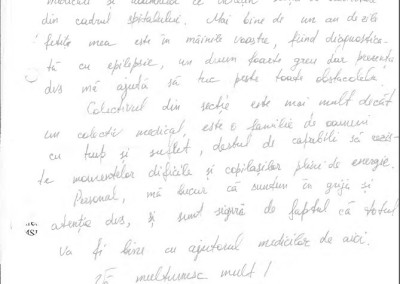 din cadrul spitalului. Mai bine de un an de zile
fetița mea este în mâinile voastre, fiind diagnostica-
tă cu epilepsie, un drum foarte greu dar prezența
dvs mă ajută să trec peste toate obstacolele.
Colectivul din secție este mai mult decât
un colectiv medical, este o familie de oameni
cu trup și suflet, destul de capabili să rezis-
te momentelor dificile și copilașilor plini de energie.
Personal, mă bucur că suntem în grija și
atenția dvs, și sunt sigură de faptul că totul
va fi bine cu ajutorul medicilor de aici.
Vă mulțumesc mult!